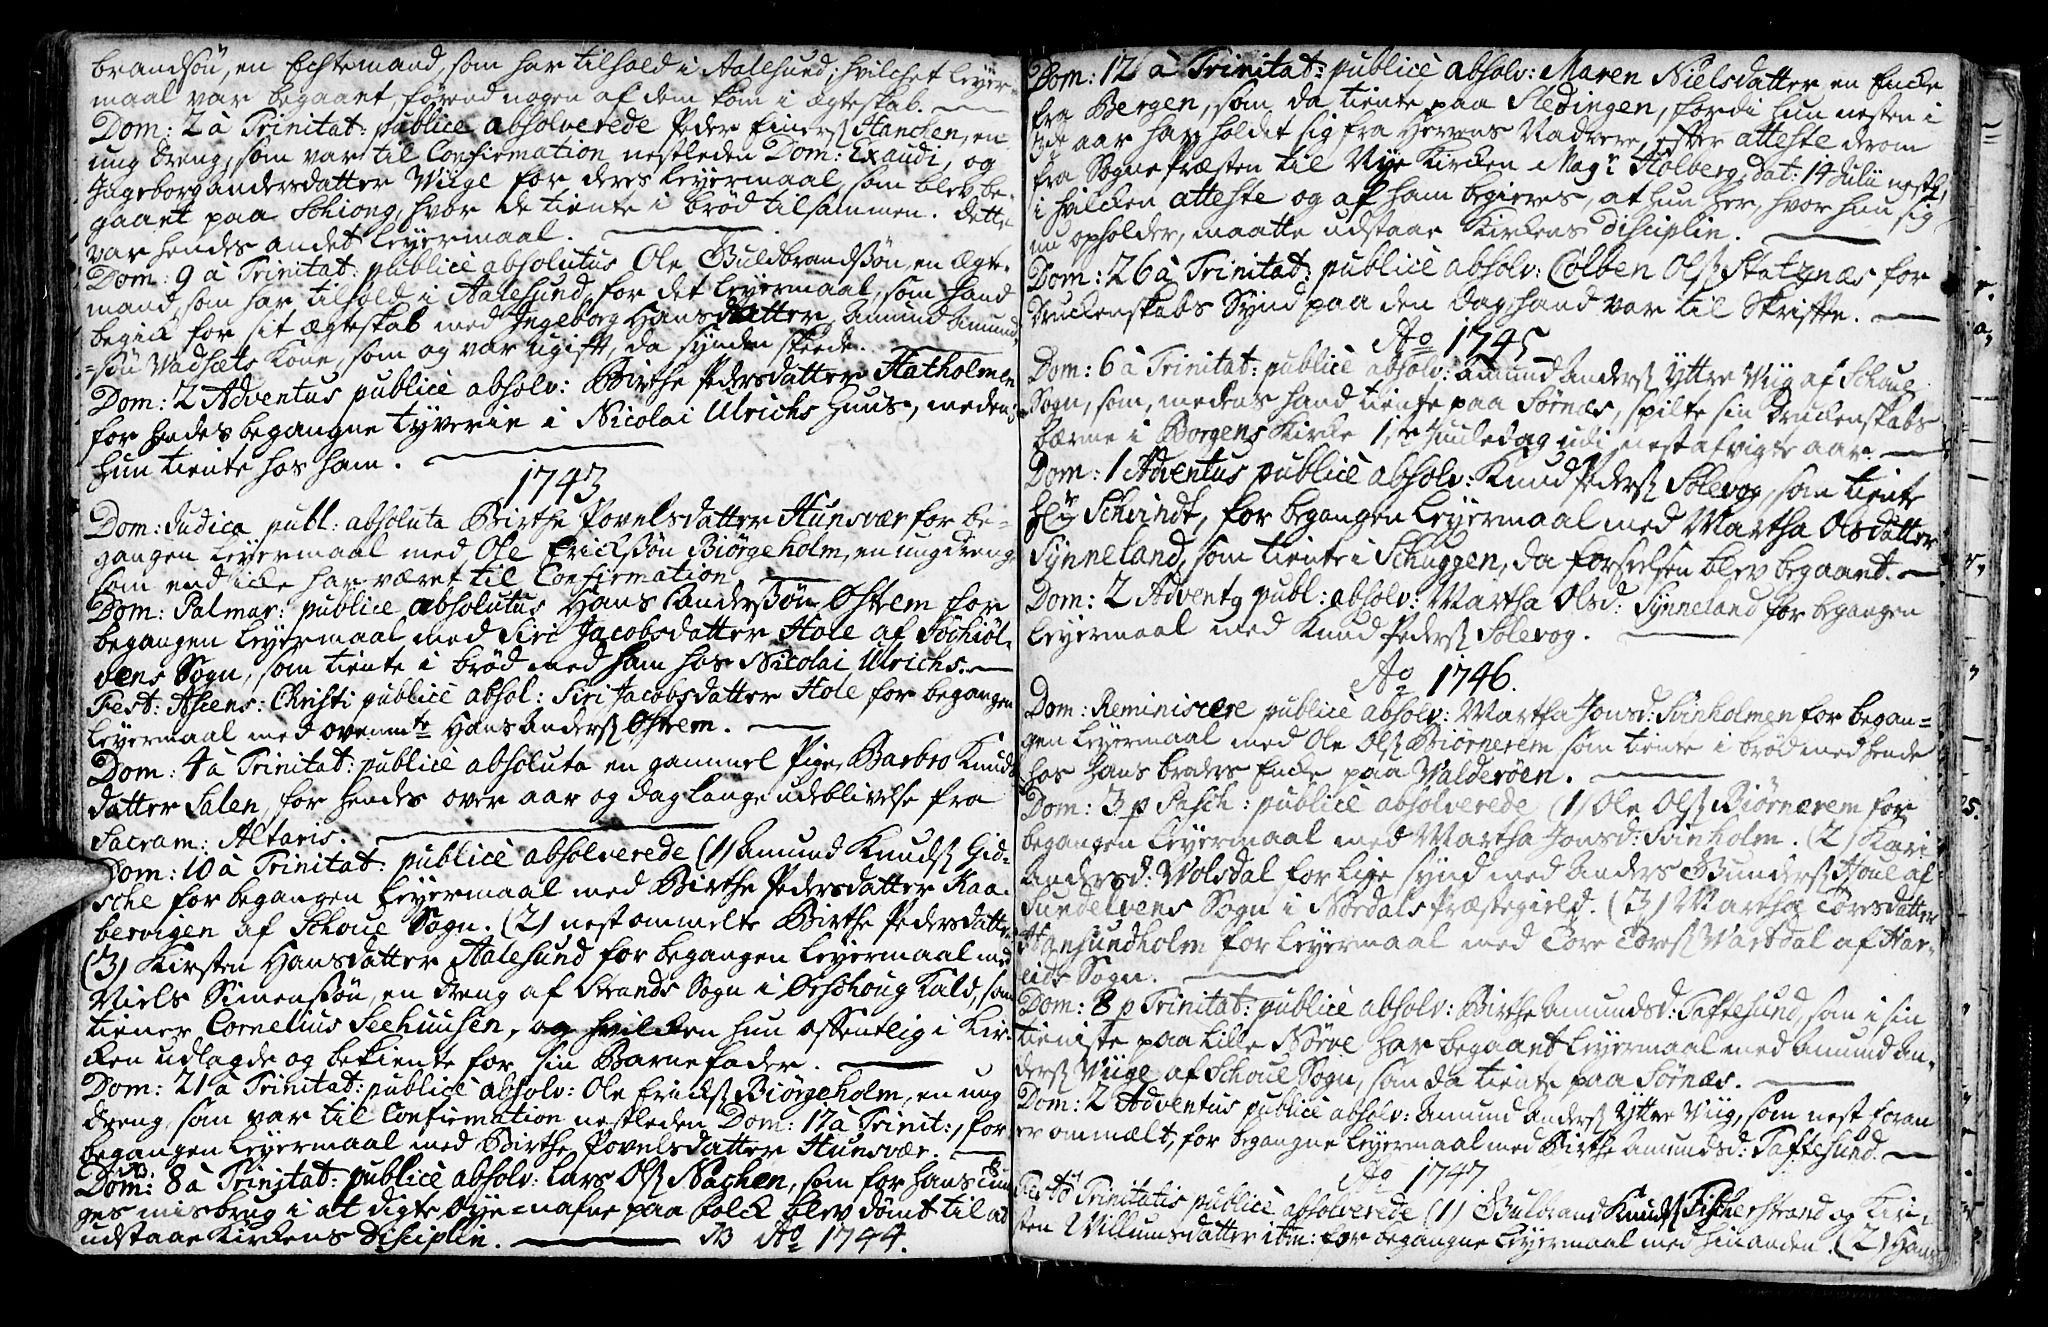 brandsön, en Echtemand, som har tilhold i Aalesund; hvilchet Leyer-
maal var begaaet, förend nogen af dem kom i ægteskab.
Dom: 2 à Trinitat: publicè absolverede Peder Einerß Hancken, en
ung dreng, som var til Confirmation nestleden Dom: Exaudi, og
Ingeborg andersdatter Wiige for deres Leyermaal, som blev be-
gaaet paa Schiong, hvor de tiente i bröd tilsammen. dette
var hendes andet Leyermaal.
Dom: 9 à Trinitat: publicè absolutus Ole Guldbrandßön, en ægte-
mand, som har tilhold i Aalesund, for det Leyermaal, som hand
begick for sit ægteskab med Ingeborg Hansdatter, Amund Amund-
sön Wadsæts Kone, som og var ugift, da synden skeede.
Dom: 2 Adventus publicè absolv: Birthe Pedersdatter Hatholmen
for hendes begangne tyverie i Nicolai Ulrichs huus, medens
hun tiente hos ham.
1743
Dom: Judica publ: absoluta Birthe Povelsdatter Hunsvær for be-
gangen Leyermaal med Ole Erickßön Biörgeholm, en ung dreng,
som end icke har været til Confirmation.
Dom: Palmar: publicè absolutus Hans Anderßön Östrem for
begangen Leyermaal med Siri Jacobsdatter Hole af Söchiöl-
vens Sogn, som tiente i bröd med ham hos Nicolai Ulrichs.
Fest: Ascens: Christi publicè absol: Siri Jacobsdatter Hole for begangen
Leyermaal med ovenmte Hans Anderß Östrem.
Dom: 4 à Trinitat: publicè absoluta en gammel Pige, Barbro Knuds
datter Salen, for hendes over aar og dag lange udeblivelse fra
Sacram: Altaris.
Dom: 10 à Trinitat: publicè absolverede (1) Amund Knudß Gid-
sche for begangen Leyermaal med Birthe Pedersdatter Kaa-
bervigen af Schoue Sogn. (2) nestommelte Birthe Pedersdatter
(3) Kirsten Hansdatter Aalesund for begangen Leyermaal med
Niels Simenßön, en dreng af Strands Sogn i Örschoug Kald, som
tiener Cornelius Seehuusen, og hvilcken hun offentlig i Kir-
cken udlagde og bekiente for sin Barnefader.
Dom: 21 à Trinitat: publicè absolv: Ole Erickß Biörgeholm, en ung
dreng, som var til Confirmation nestleden Dom: 17 à Trinit:, for
begangen Leyermaal med Birthe Povelsdatter Hunsvær.
Dom: 8 à Trinitat: publicè absolv: Lars Olß Nachen, som for hans Tun-
ges misbrug i at digte Öye-nafne paa folck blev dömt til at
udstaae Kirckens Disciplin. NB Ao 1744.
Dom: 12 à Trinitat: publicè absolv: Maren Nielsdatter en Encke
fra Bergen, som da tiente paa Sledingen, fordi hun nesten i
aar har holdet sig fra Herrens Nadvere, efter atteste derom
fra Sognepræsten til Nye Kircken Magr Holberg, dat: 14 Julii nestl,
i hvilcken atteste og af ham begieres, at hun her, hvor hun sig
nu opholder, maatte udstaae Kirckens disciplin.
Dom: 26 à Trinitat: publicè absolv: Colben Olß Stetznæs, for
Druckenskabs Synd paa den dag, hand var til Skrifte.
Ao 1745
Dom: 6 à Trinitat: publicè absolv: Amund Anderß Yttre Wiig af Schoue
Sogn, som, medens hand tiente paa Sörnæs, spilte sin Druckenskabs
bærme i Borgens Kirke 1ste Juuledag udi nestafvigte aar.
Dom: 1 Adventus publicè absolv: Knud Pederß Solevog, som tiente
Schvindt, for begangen Leyermaal med Martha Olsdatter
Synneland, som tiente i Schuggen, da forseelsen blev begaaet.
Dom: 2 Advent9 publ: absolv: Martha Olsd: Synneland for begangen
Leyermaal med Knud Pederß Solevog.
Ao 1746.
Dom: Reminiscere publicè absolv: Martha Jonsd: Svinholmen for began-
gen Leyermaal med Ole Olß Biörnerem som tiente i bröd med hende
hos hans broders Encke paa Walderöen.
Dom: 3 p Pasch: publicè absolverede (1) Ole Olß Biörnerem for
begangen Leyermaal med Martha Jonsd: Svinholm. (2) Kari
Andersd: Wolsdal for lige synd med Anders Gunderß Houe af
Sundelvens Sogn i Nordals Præstegield. (3) Martha Toresdatter
Hansundholm for Leyermaal med Tore Toreß Wartdal af Har-
eids Sogn.
Dom: 8 p Trinitat: publicè absolv: Birthe Amundsd: Taftesund, som i sin
tieniste paa Lille Nörve har begaaet Leyermaal med Amund An-
derß Wiige af Schoue Sogn, som da tiente paa Sörnæs.
Dom: 2 Adventus publicè absolv: Amund Anderß Yttre Wiig, som nest foran
er ommælt, for begangne Leyermaal med Birthe Amundsd: Taftesund.
Ao 1747
Festo Trinitatis publicè absolverede (1) Guldbrand Knudß Fischerstrand og Kir-
sten Willumsdatter ibm: for begangne Leyermaal med hinanden. (2) Hans